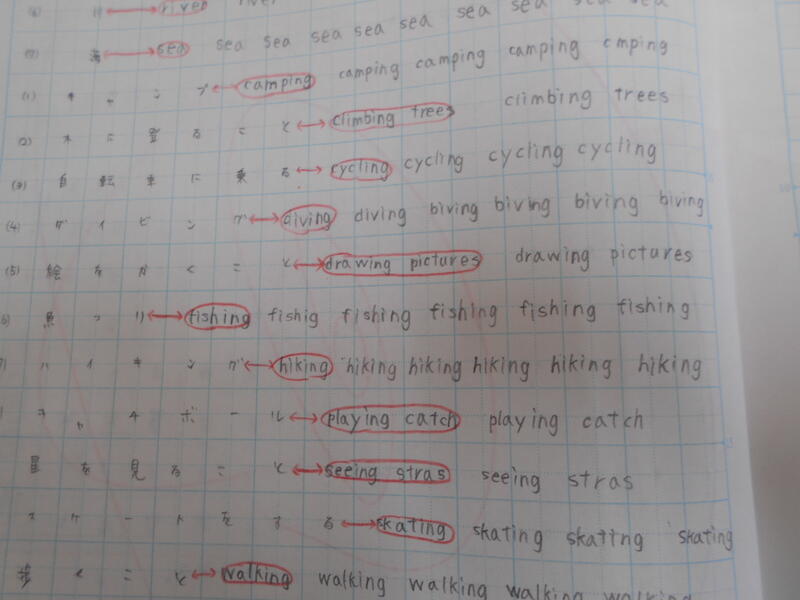 (6) 川 river river
(7) 海 sea sea sea sea sea sea sea sea sea sea
(1) キャンプ camping camping camping camping cmping
(2) 木に登ること climbing trees climbing trees
(3) 自転車に乗る cycling cycling cycling cycling
(4) ダイビング diving diving biving biving biving biving
(5) 絵をかくこと drawing pictures drawing pictures
6) 魚つり fishing fishig fishing fishing fishing fishing
7) ハイキング hiking hiking hiking hiking hiking hiking
) キャチボール playing catch playing catch
星を見ること seeing stras seeing stras
スケートをする skating skating skattng skating
歩くこと walking walking walking walking walking